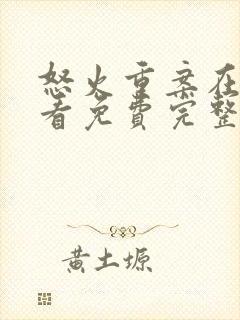 怒火重案在
看免费完整
黄土塬